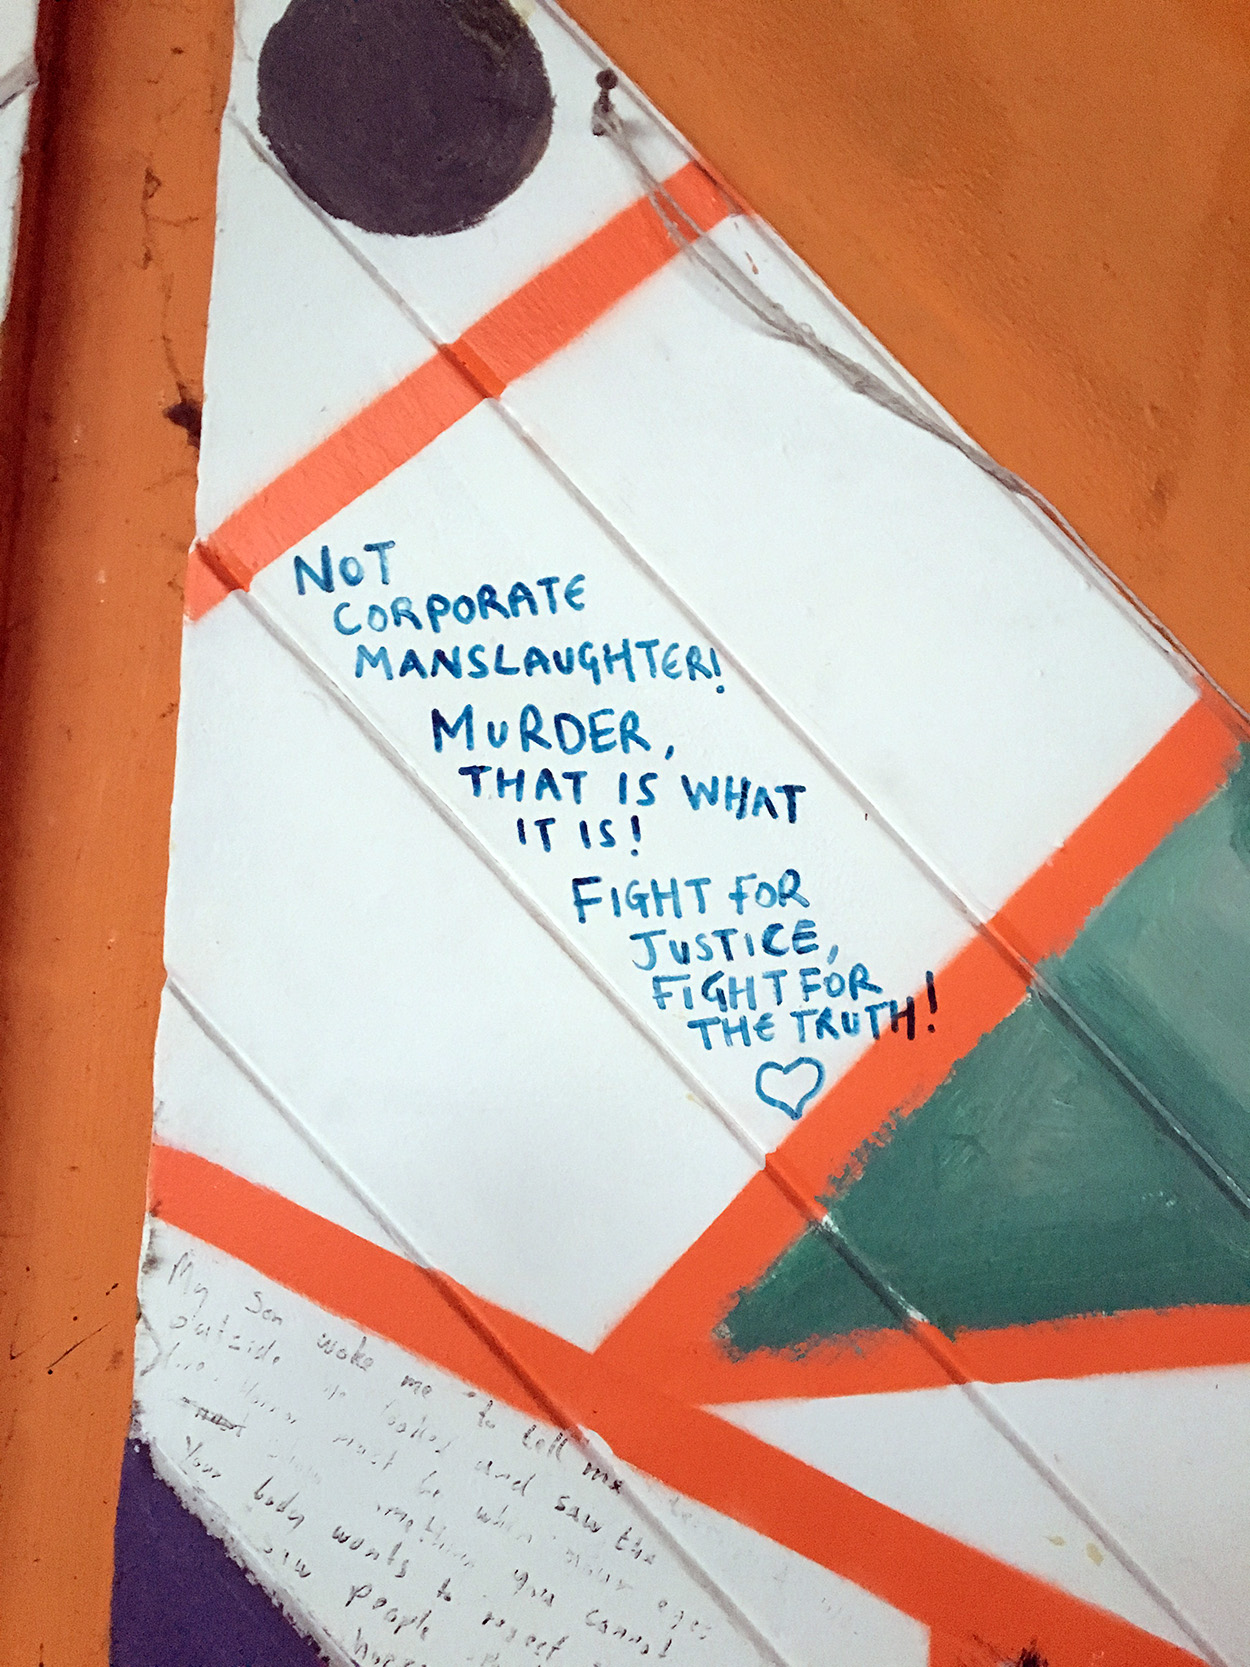 NOT
CORPORATE
MANSLAUGHTER!
MURDER,
THAT IS WHAT
IT IS!
FIGHT FOR
JUSTICE,
FIGHT FOR
THE TRUTH!
My son woke me to tell me
outside looked and saw the
must be when your eyes
you cannot
Your body wants to reject
saw people